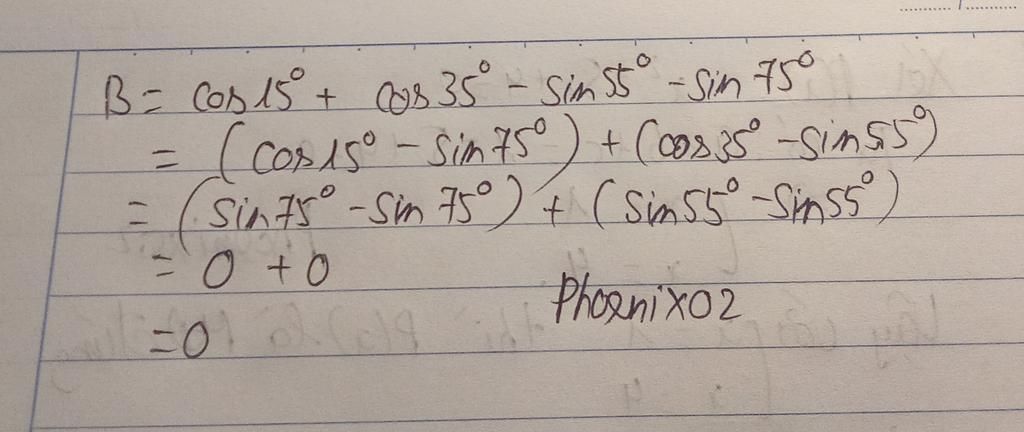 B = cos15° + cos35° - sin55° - sin75°
= (cos15° - sin75°) + (cos35° - sin55°)
= (sin75° - sin75°) + (sin55° - sin55°)
= 0 + 0
Phoenix02
= 0